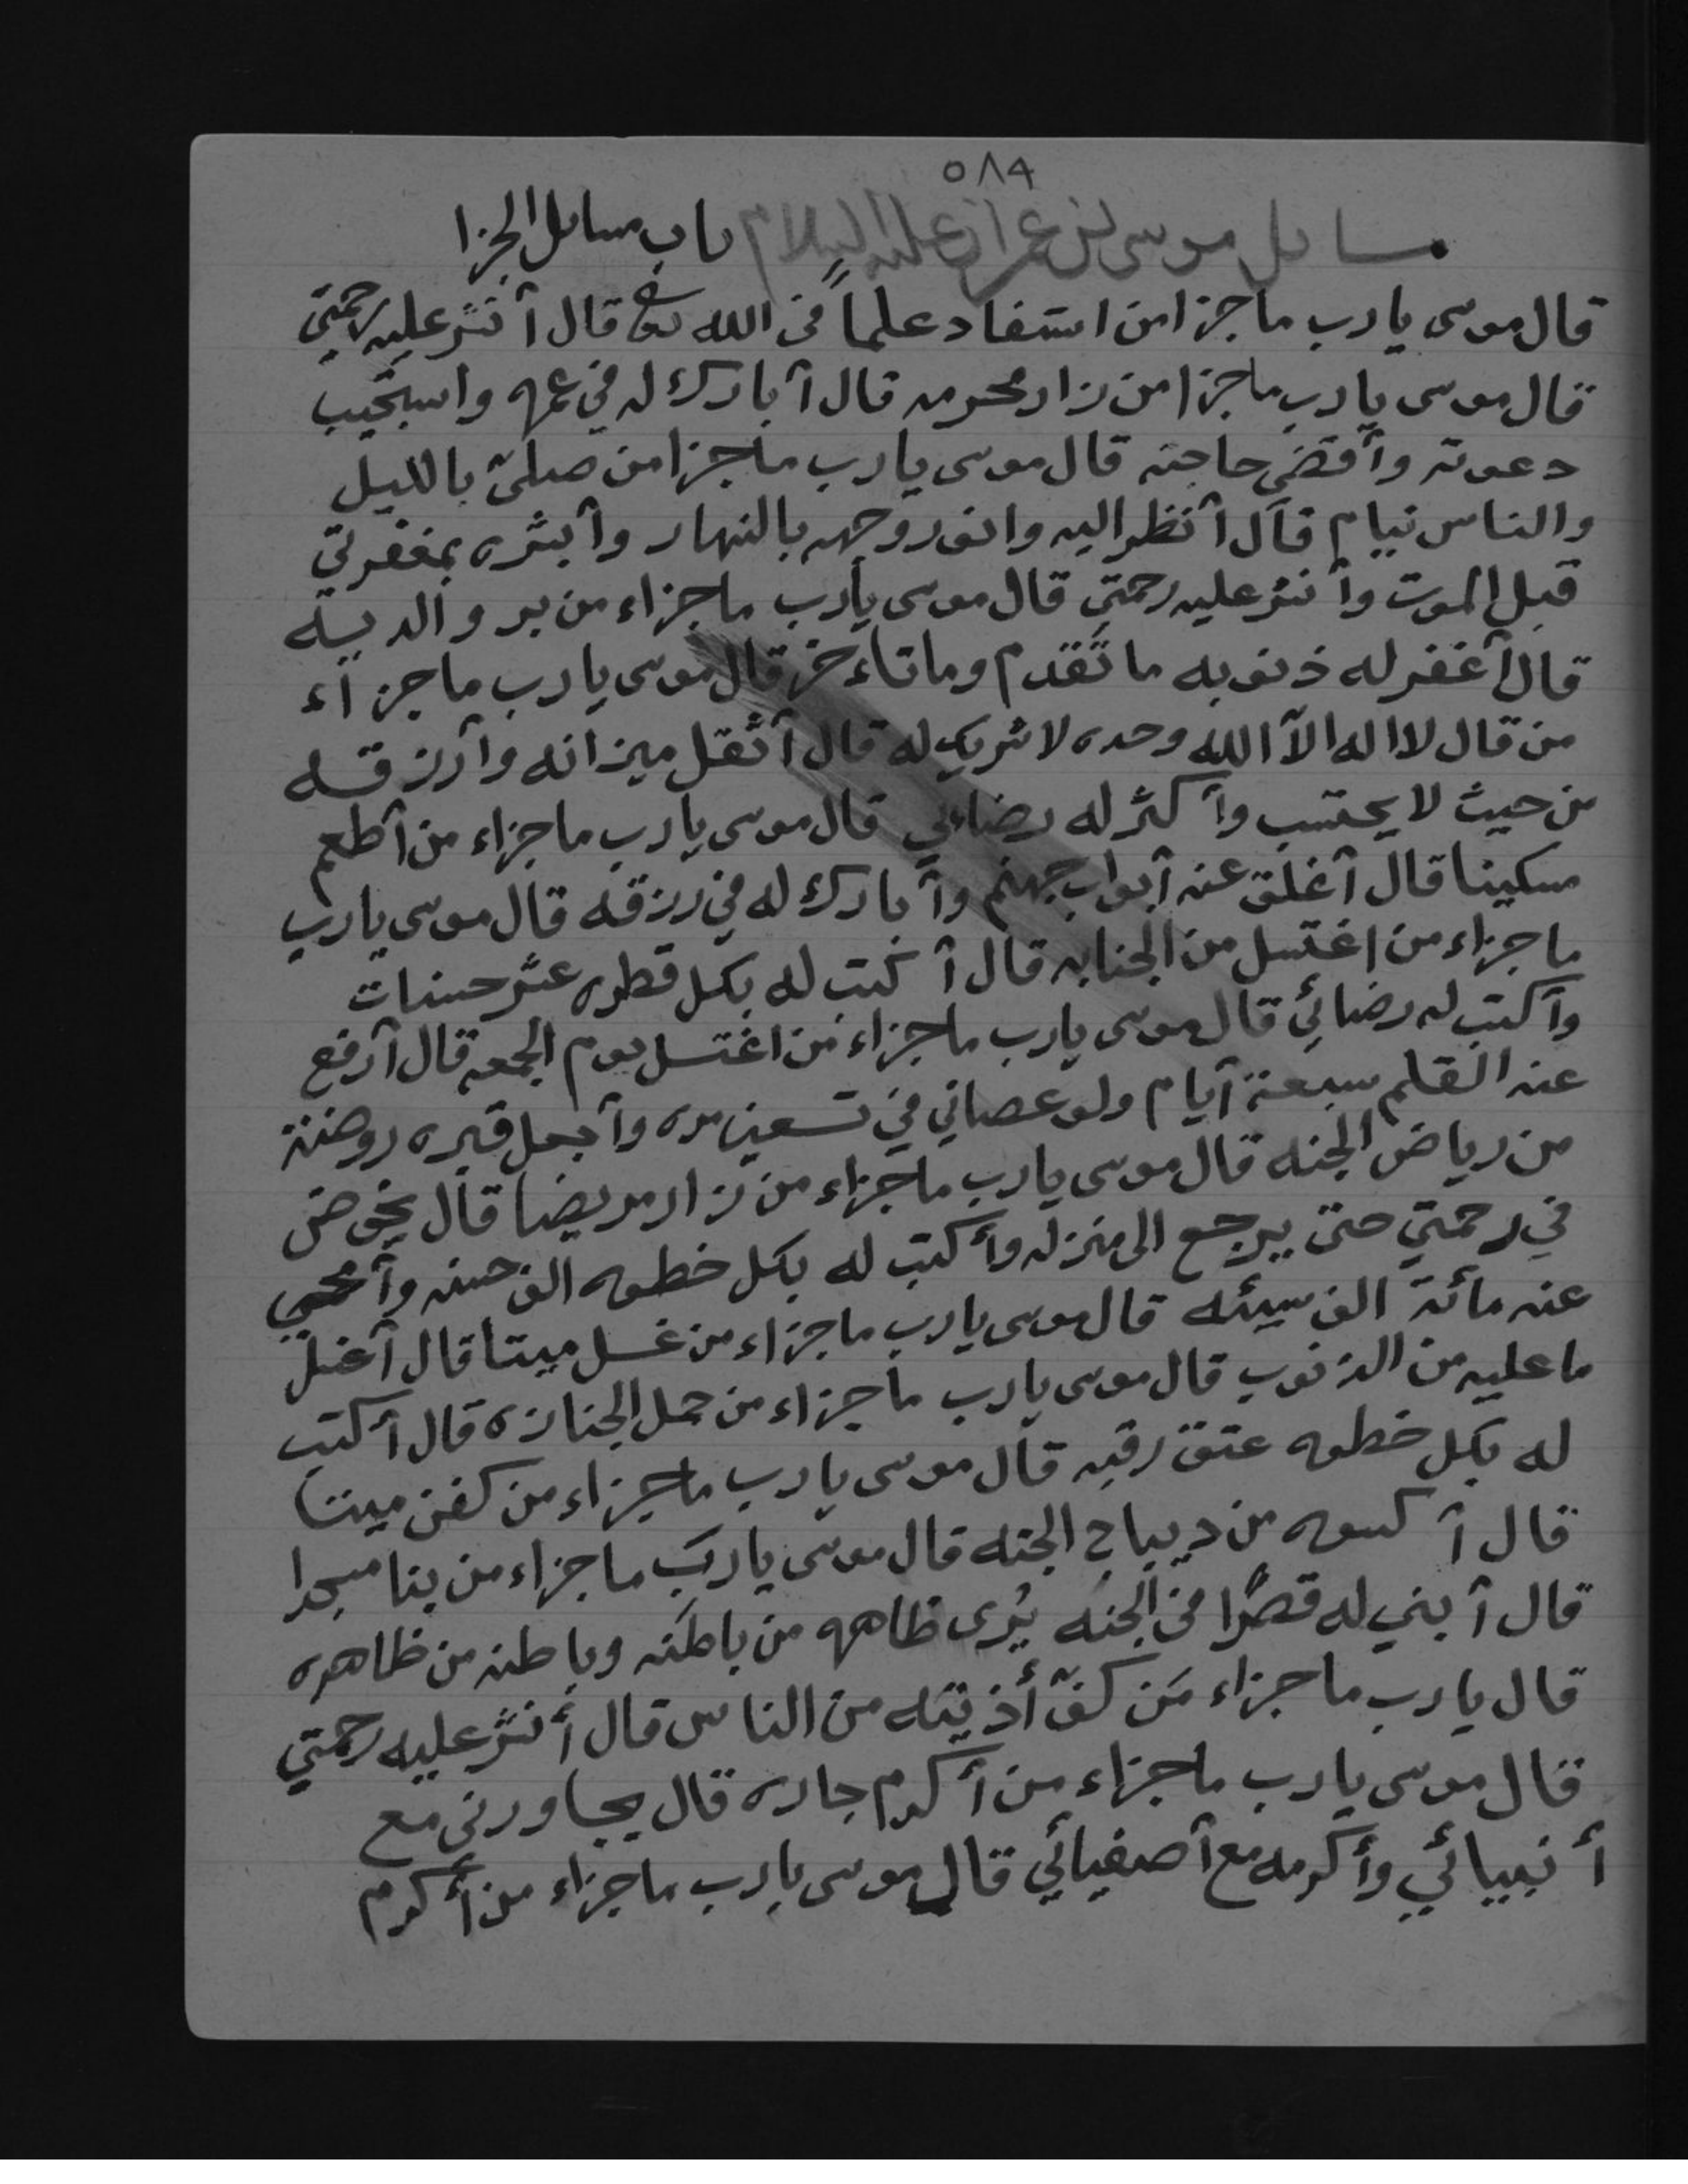 ٥٨٩
مسايل موسى بن عمران عليه السلام باب مسايل الجزا
قال موسى يا رب ما جزا من استفاد علماً في الله تعالى قال أنشر عليه رحمتي
قال موسى يا رب ما جزا من زار محرمه قال أبارك له في عمره واستجيب
دعوته وأقضي حاجته قال موسى يا رب ما جزا من صلى بالليل
والناس نيام قال أنظر اليه وانور وجهه بالنهار وأبشره بمغفرتي
قبل الموت وأنشر عليه رحمتي قال موسى يا رب ما جزاء من بر والديه
قال أغفر له ذنوبه ما تقدم وما تاءخر قال موسى يا رب ما جزاء
من قال لا اله الا الله وحده لا شريك له قال أثقل ميزانه وأرزقه
من حيث لا يحتسب وأكثر له رضايي قال موسى يا رب ما جزاء من أطعم
مسكينا قال أغلق عنه أبواب جهنم وأبارك له في رزقه قال موسى يا رب
ما جزاء من اغتسل من الجنابه قال أكتب له بكل قطره عشر حسنات
وأكتب له رضائي قال موسى يا رب ما جزاء من اغتسل يوم الجمعه قال أرفع
عنه القلم سبعة أيام ولو عصاني في تسعين مره وأجعل قبره روضة
من رياض الجنه قال موسى يا رب ما جزاء من زار مريضا قال يخوض
في رحمتي حتى يرجع الى منزله وأكتب له بكل خطوه الف حسنه وأمحي
عنه مائة الف سيئه قال موسى يا رب ما جزاء من غسل ميتا قال أغسل
ما عليه من الذنوب قال موسى يا رب ما جزاء من حمل الجنازه قال أكتب
له بكل خطوه عتق رقبه قال موسى يا رب ما جزاء من كفن ميتا
قال أكسوه من ديباج الجنه قال موسى يا رب ما جزاء من بنا مسجدا
قال أبني له قصرًا في الجنه يُرى ظاهره من باطنه وباطنه من ظاهره
قال يا رب ما جزاء من كفّ أذيته من الناس قال أنشر عليه رحمتي
قال موسى يا رب ما جزاء من أكرم جاره قال يجاورني مع
أنبيائي وأكرمه مع أصفيائي قال موسى يا رب ما جزاء من أكرم